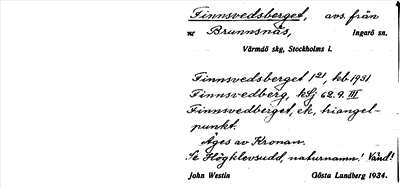 Finnsvedsberget, avs. från
nr Brunnsnäs, Ingarö sn,
Värmdö skg, Stockholms l.
Finnsvedsberget 1²¹, kb 1931
Finnsvedberg, hSj 62.9. III
Finnsvedberget, ek, triangel-
punkt.
Äges av Kronan.
Se Högklevsudd, naturnamn! Vänd!
John Westin Gösta Lundberg 1934.